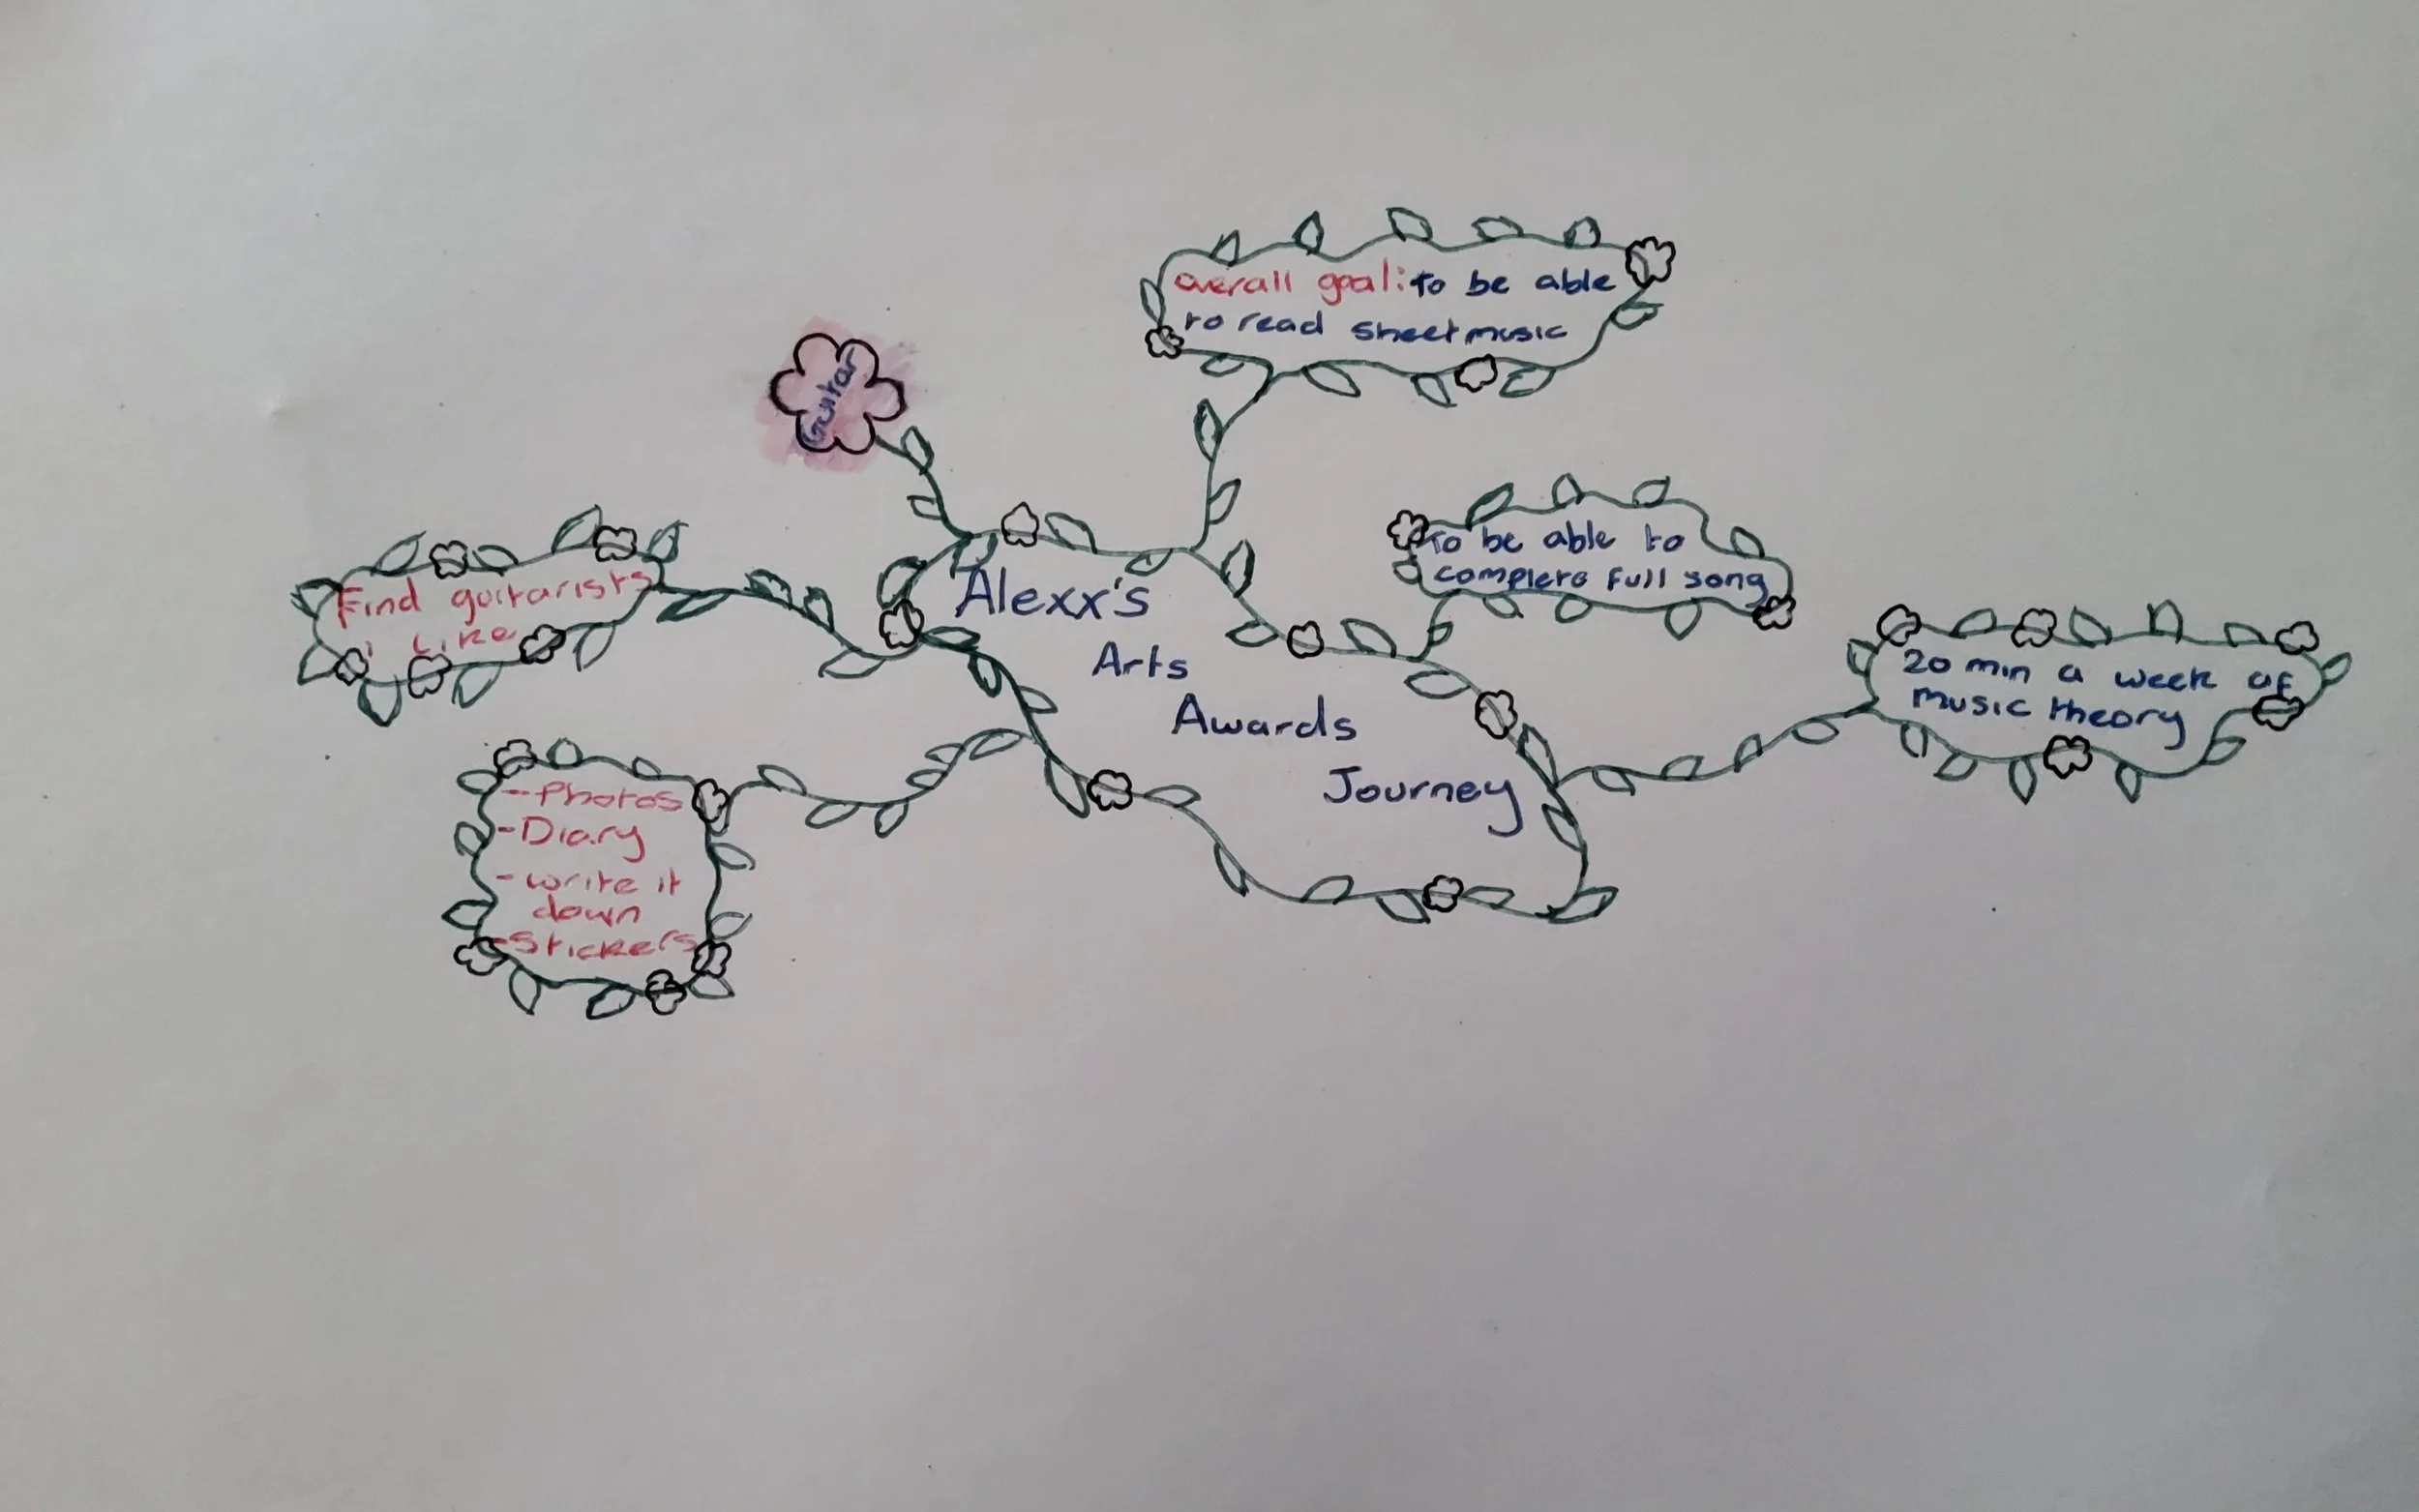 Guitar
overall goal: to be able
to read sheet music
To be able to
complete full song
20 min a week of
music theory
Find guitarists
i Like
Alexx's
Arts
Awards
Journey
- Photos
- Diary
- write it
down
- Stickers